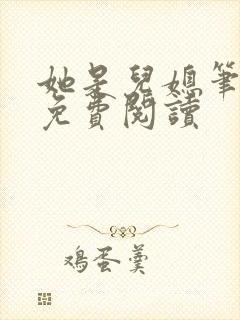 她是兒媳筆
免費閱讀
鸡蛋羹